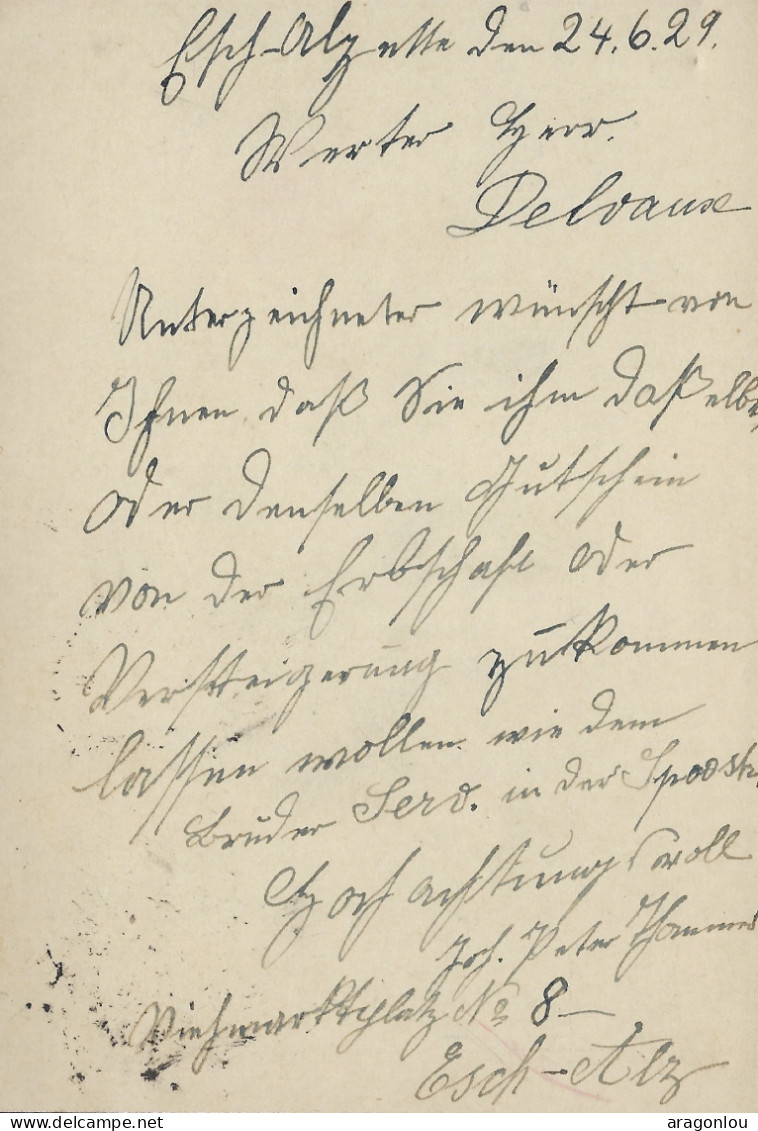 Esch-Alzette den 24.6.29.
Werter Herr.
Delvaux
Unterzeichneter wünscht von
Ihnen daß Sie ihm daßelbe
oder denselben Gutschein
von der Erbschaft oder
Versteigerung zukommen
lassen wollen wie dem
Bruder Ferd. in der
Hochachtungsvoll
Joh. Peter
Viehmarktplatz No 8 —
Esch-Alz
aragonlou